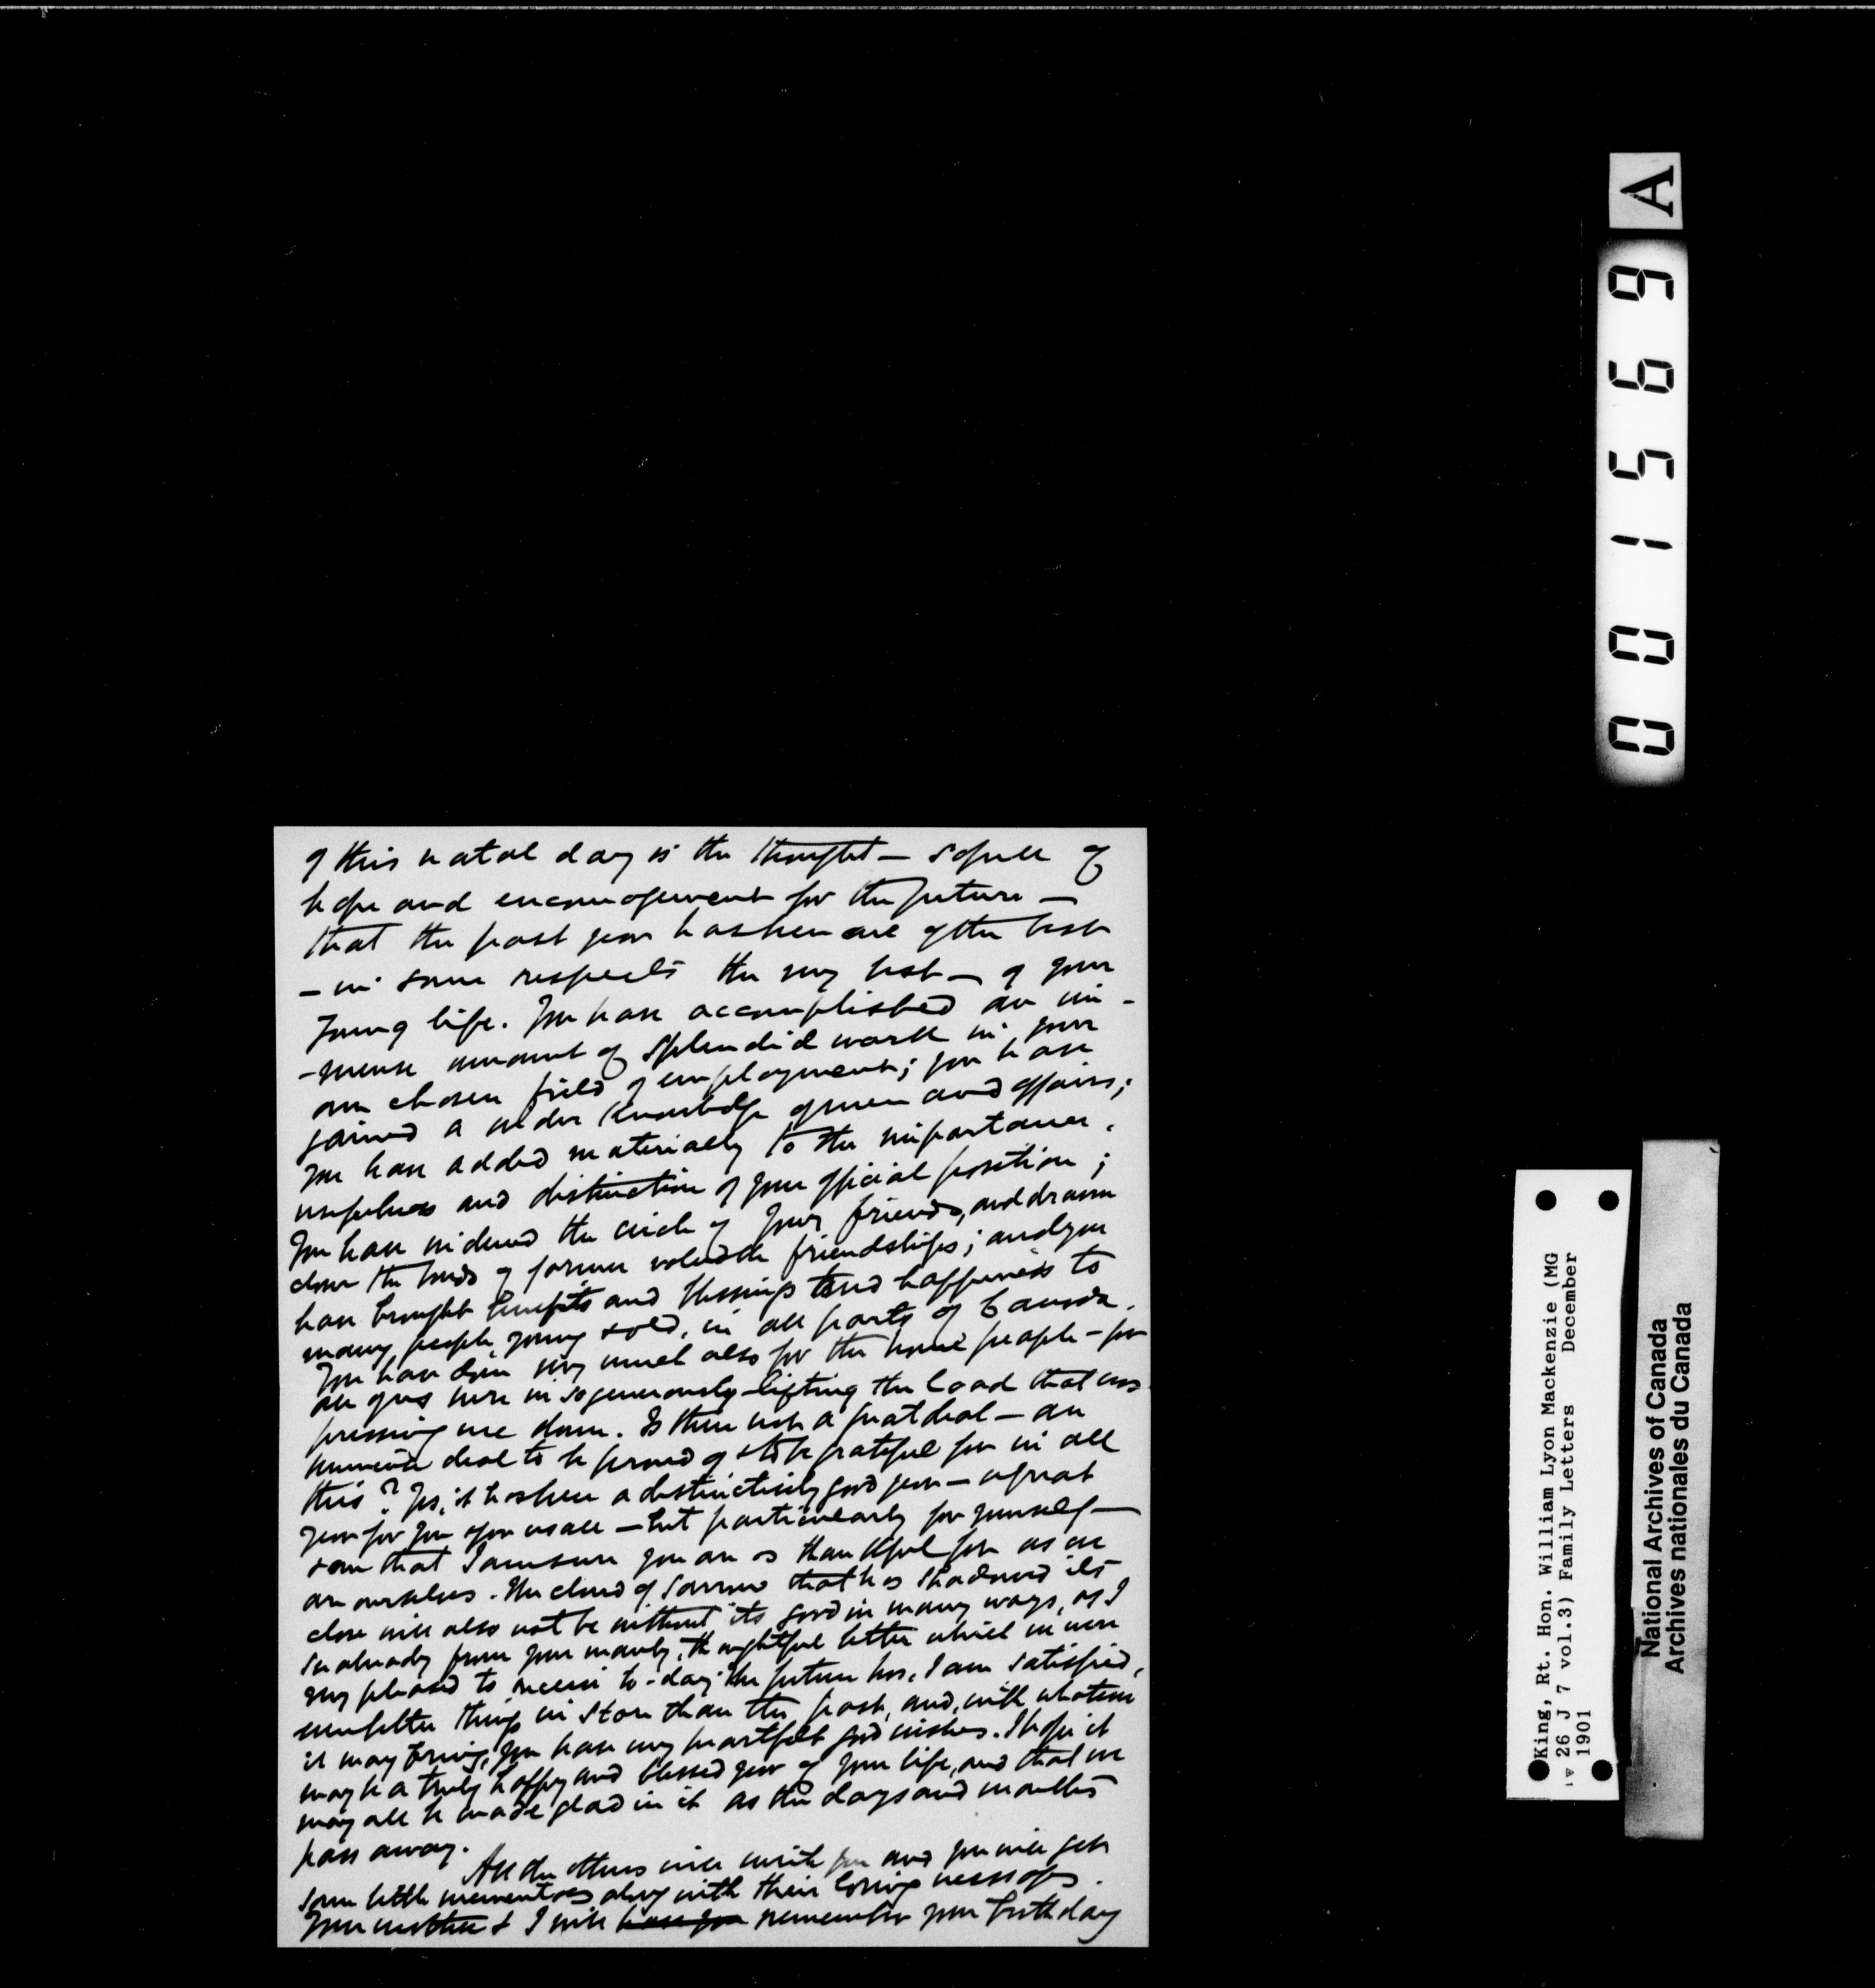 of this natal day is the thought — so full of
hope and encouragement for the future —
that the past year has been one of the best
— in some respects the very best — of your
young life. You have accomplished an im-
-mense amount of splendid work in your
own chosen field of employment; you have
gained a wider knowledge of men and affairs;
you have added materially to the importance,
usefulness and distinction of your official position;
You have widened the circle of your friends, and drawn
closer the bonds of former valuable friendships; and you
have brought benefits and blessings and happiness to
many people, young & old, in all parts of Canada.
You have done very much also for the home people — for
all of us here in so generously lifting the load that was
pressing me down. Is there not a great deal — an
immense deal to be proud of & to be grateful for in all
this? Yes, it has been a distinctively good year — a great
year for you & for us all — but particularly for yourself —
& one that I am sure you are as thankful for as we
are ourselves. The cloud of sorrow that has shadowed its
close will also not be without its good in many ways, as I
see already from your manly, thoughtful letter which we were
very pleased to receive to-day. The future has, I am satisfied,
even better things in store than the past, and, with whatever
it may bring, you have my heartfelt good wishes. I hope it
may be a truly happy and blessed year of your life, and that we
may all be made glad in it as the days and months
pass away.
All the others will write you and you will get
some little mementoes along with their loving messages.
Your mother & I will have you remember your birthday
A
001569
King, Rt. Hon. William Lyon Mackenzie (MG
26 J 7 vol.3) Family Letters December
1901
National Archives of Canada
Archives nationales du Canada